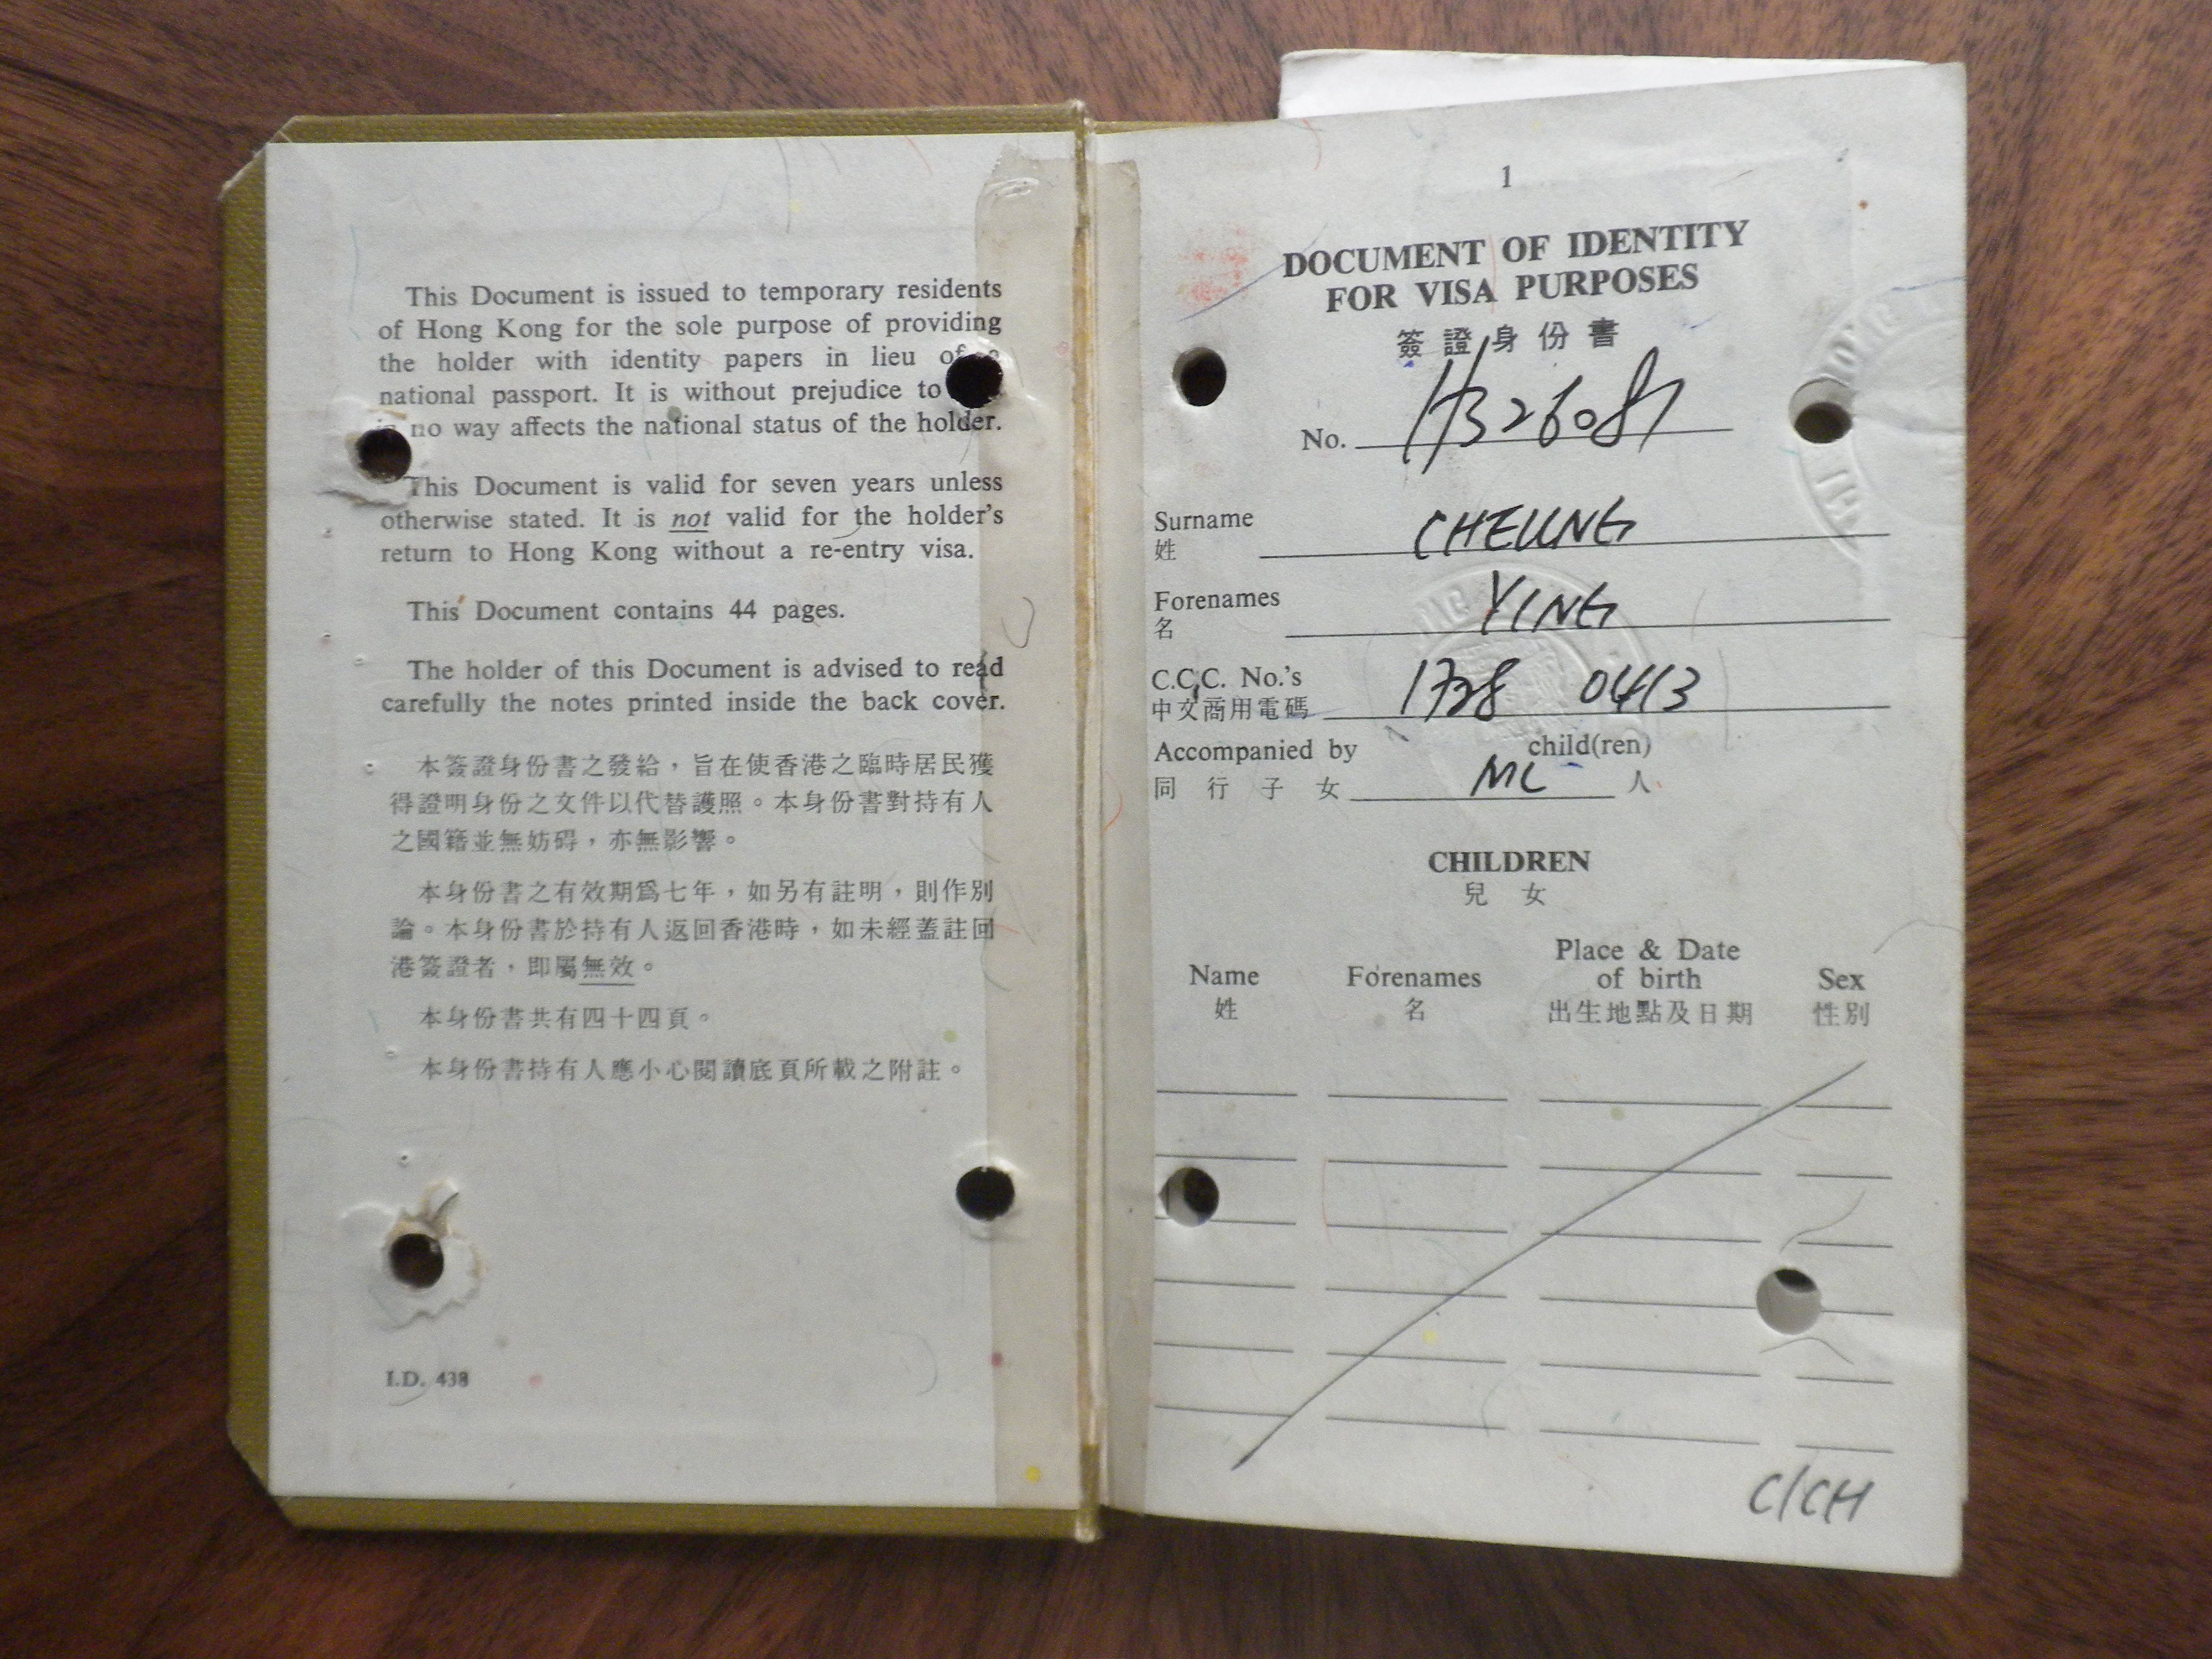 This Document is issued to temporary residents
of Hong Kong for the sole purpose of providing
the holder with identity papers in lieu of
national passport. It is without prejudice to
no way affects the national status of the holder.
This Document is valid for seven years unless
otherwise stated. It is not valid for the holder's
return to Hong Kong without a re-entry visa.
This Document contains 44 pages.
The holder of this Document is advised to read
carefully the notes printed inside the back cover.
本簽證身份書之發給，旨在使香港之臨時居民獲
得證明身份之文件以代替護照。本身份書對持有人
之國籍並無妨碍，亦無影響。
本身份書之有效期爲七年，如另有註明，則作別
論。本身份書於持有人返回香港時，如未經蓋註回
港簽證者，即屬無效。
本身份書共有四十四頁。
本身份書持有人應小心閱讀底頁所載之附註。
I.D. 438
1
DOCUMENT OF IDENTITY
FOR VISA PURPOSES
簽證身份書
No. H326081
Surname CHEUNG
姓
Forenames YING
名
C.C.C. No.'s 1728 0413
中文商用電碼
Accompanied by child(ren)
同行子女 人
CHILDREN
兒女
Name Forenames Place & Date of birth Sex
姓 名 出生地點及日期 性別
C/CH